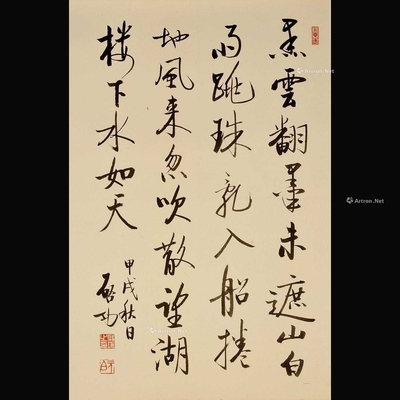 黑雲翻墨未遮山白
雨跳珠乱入船捲
地風来忽吹散望湖
楼下水如天
甲戌秋日
启功
Artron.Net
Artron.Net